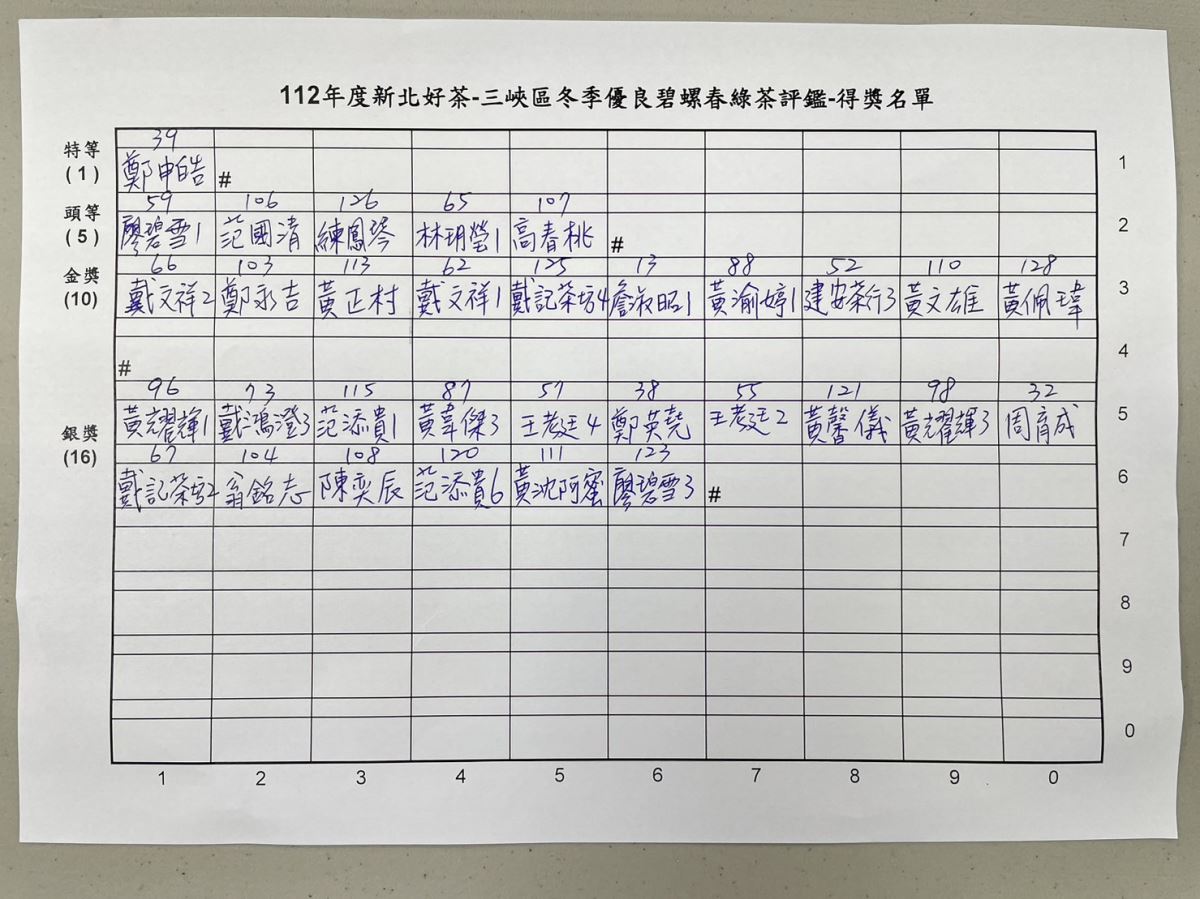 112年度新北好茶-三峽區冬季優良碧螺春綠茶評鑑-得獎名單
39
特等 (1) 鄭申皓 # 1
59 106 126 65 107
頭等 (5) 廖碧雪1 范國清 練鳳琴 林玥瑩1 高春桃 # 2
66 103 113 62 125 13 88 52 110 128
金獎 (10) 戴文祥2 鄭永吉 黃正村 戴文祥1 戴記茶坊4 詹淑昭1 黃渝婷1 建安茶行3 黃文雄 黃佩瑋 3
# 4
96 73 115 87 57 38 55 121 98 32
銀獎 (16) 黃耀輝1 戴鴻澄3 范添貴1 黃韋傑3 王孝廷4 鄭英堯 王孝廷2 黃馨儀 黃耀輝3 周育成 5
67 104 108 120 111 123
戴記茶坊2 翁銘志 陳奕辰 范添貴6 黃沈阿蜜 廖碧雪3 # 6
7
8
9
0
1 2 3 4 5 6 7 8 9 0